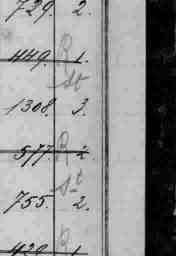 729. 2.
449. R 1.
St
1308. 3.
577. R 2.
St
755. 2.
R 1.